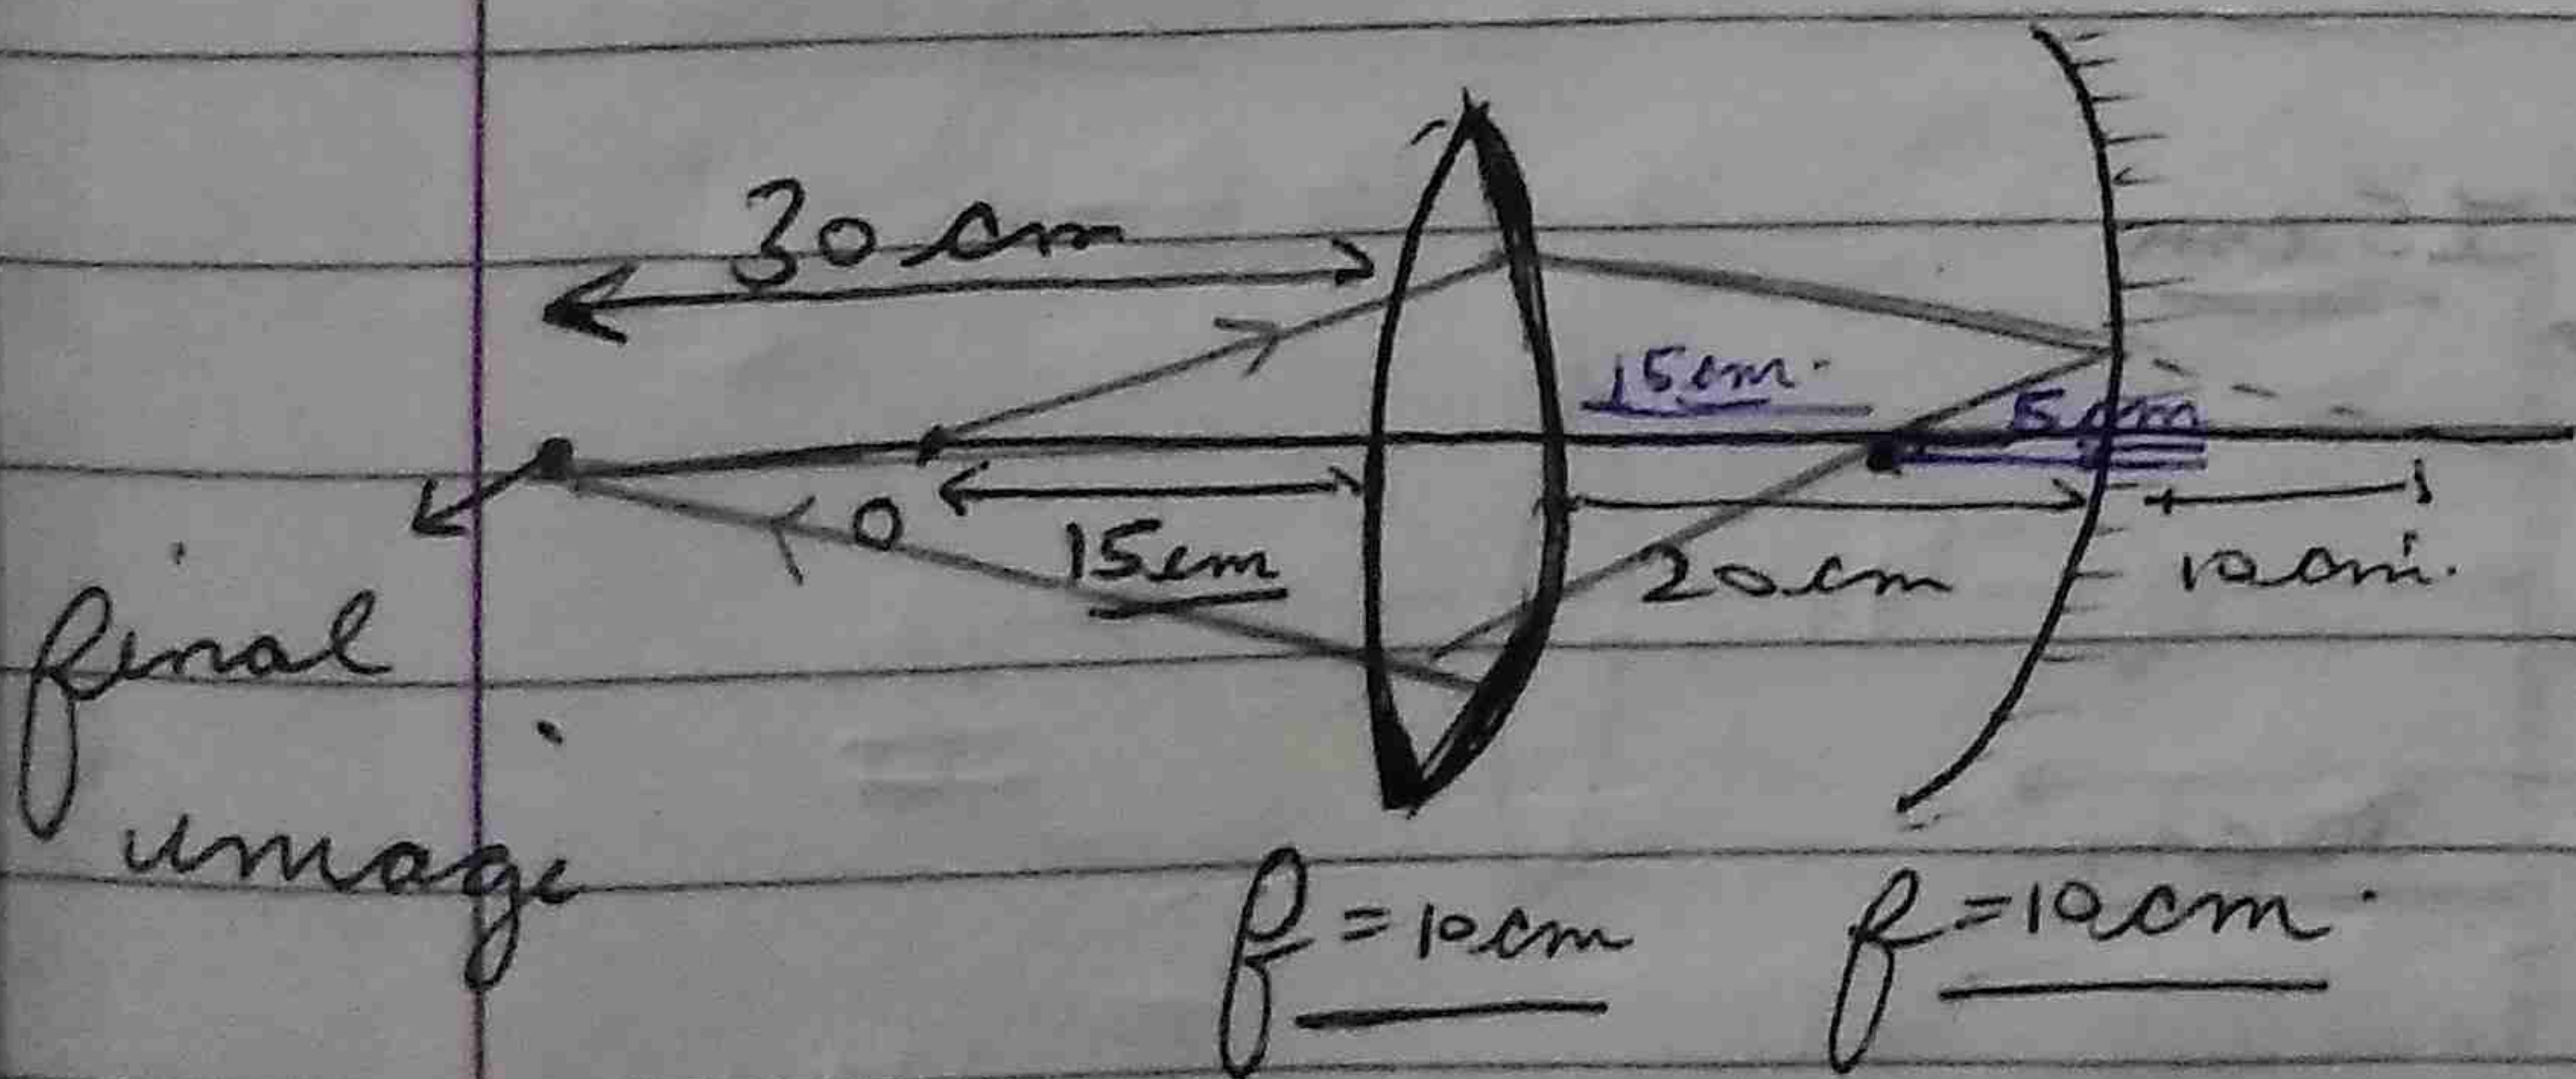 30 cm
15cm.
5cm
O
15cm
20cm
10cm.
final
image
f = 10cm
f = 10cm.